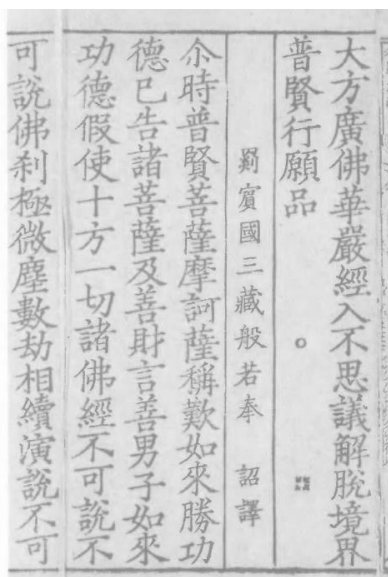 大方廣佛華嚴經入不思議解脫境界
普賢行願品
罽賓國三藏般若奉 詔譯
尒時普賢菩薩摩訶薩稱歎如來勝功
德已告諸菩薩及善財言善男子如來
功德假使十方一切諸佛經不可說不
可說佛刹極微塵數劫相續演說不可